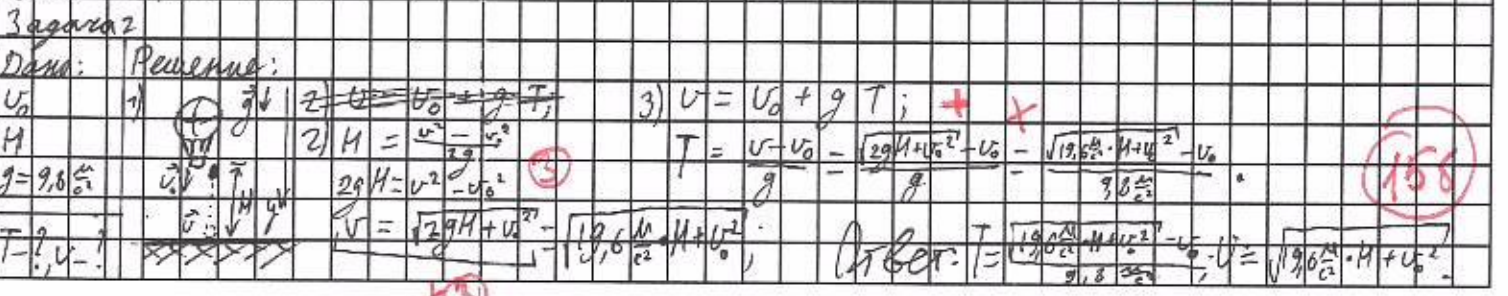 Задача 2
Дано: Решение:
v₀
H
g = 9,8 м/с²
T - ?, v - ?
1) g⃗↓
v⃗₀
v⃗
H
y
2) v = v₀ + g T;
2) H = (v² - v₀²)/2g
2gH = v² - v₀²
v = √(2gH + v₀²) = √(19,6 м/с² · H + v₀²);
3
3) v = v₀ + g T; +
T = (v - v₀)/g = (√(2gH + v₀²) - v₀)/g = (√(19,6 м/с² · H + v₀²) - v₀)/(9,8 м/с²).
Ответ: T = (√(19,6 м/с² · H + v₀²) - v₀)/(9,8 м/с²); v = √(19,6 м/с² · H + v₀²).
15б